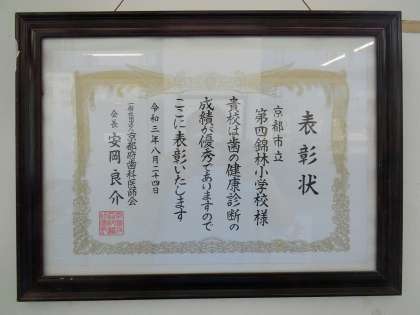 表彰状
京都市立
第四錦林小学校 様
貴校は歯の健康診断の
成績が優秀でありますので
ここに表彰いたします
令和三年八月二十四日
一般社団法人京都府歯科医師会
会長 安岡良介